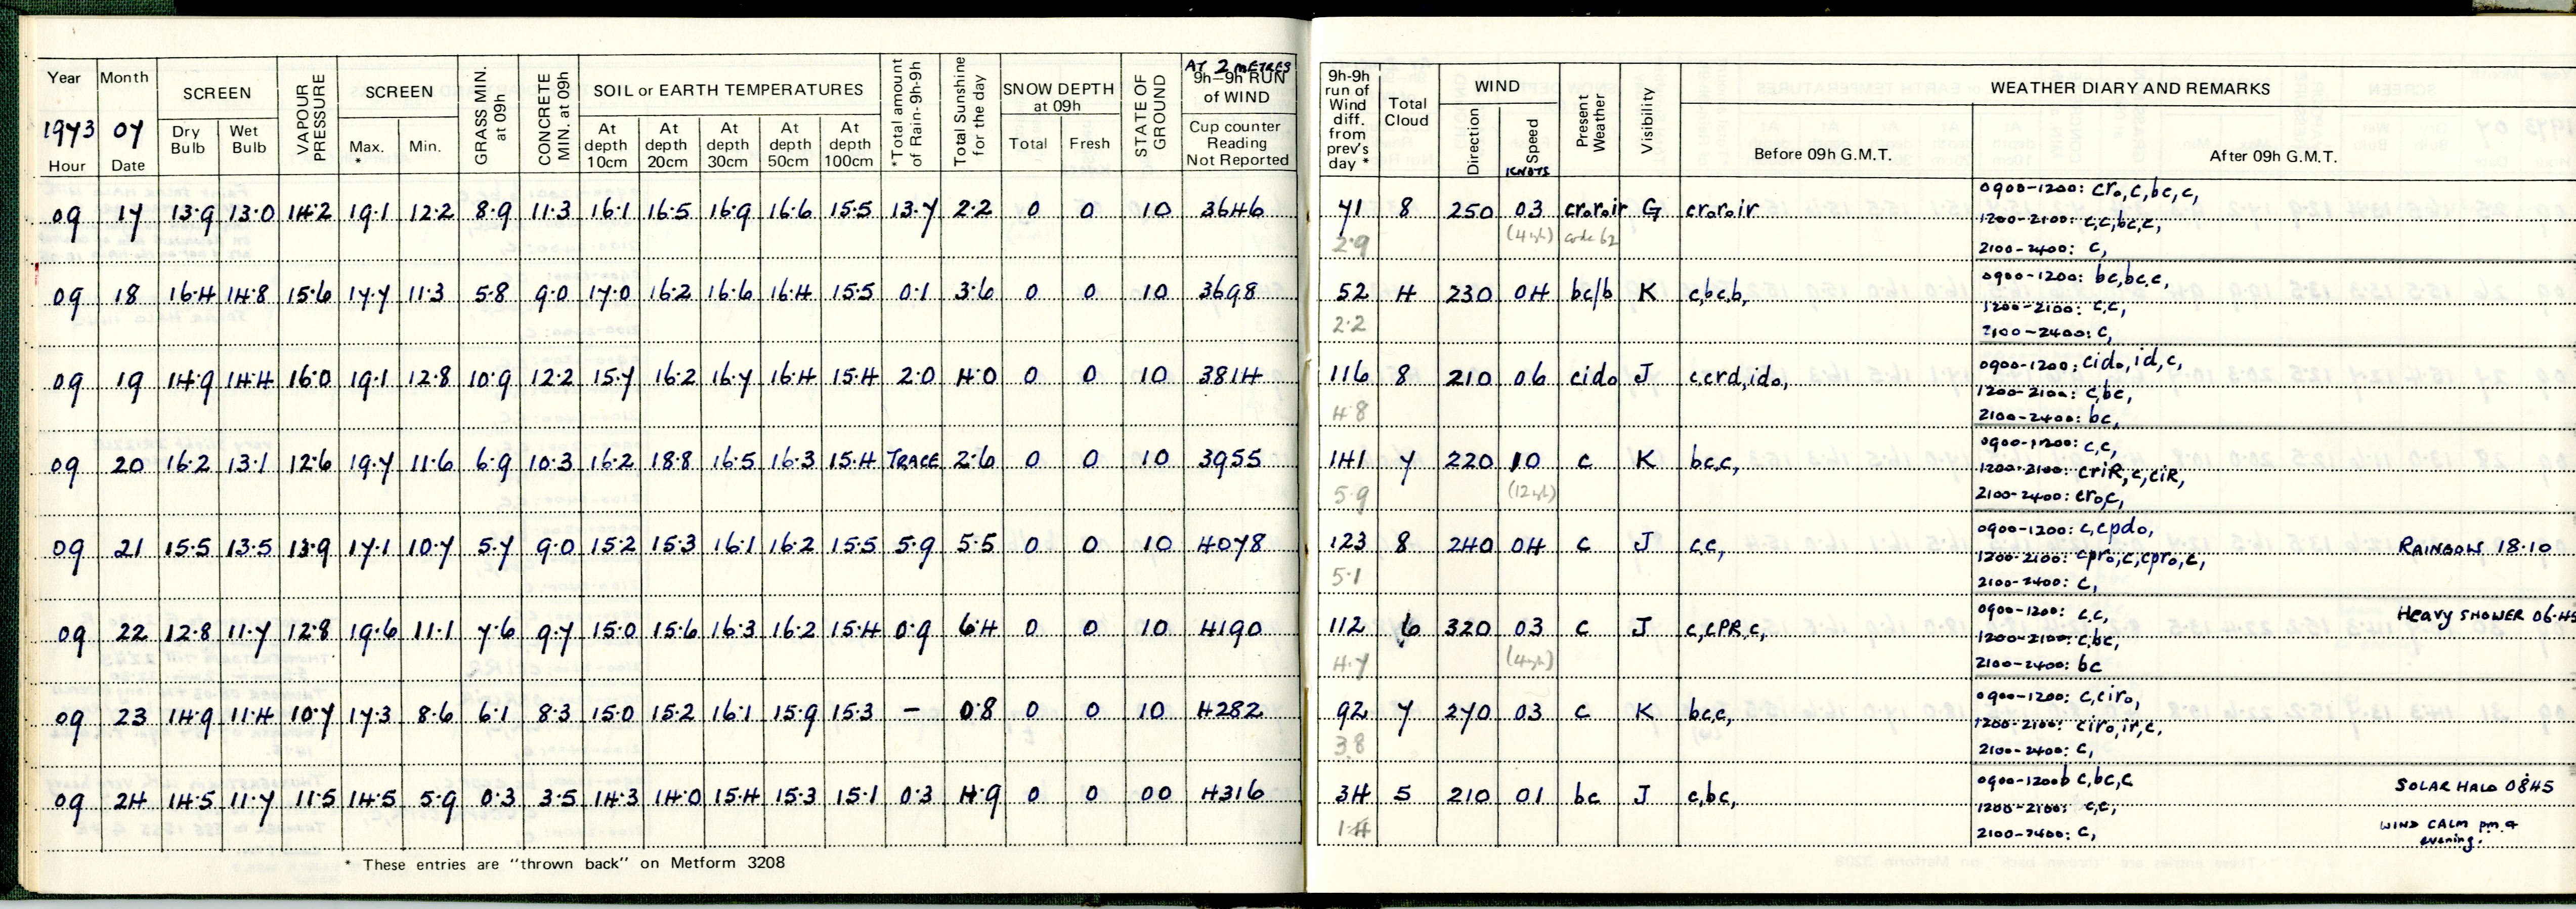 Year Month SCREEN VAPOUR PRESSURE SCREEN GRASS MIN. at 09h CONCRETE MIN. at 09h SOIL or EARTH TEMPERATURES *Total amount of Rain-9h-9h Total Sunshine for the day SNOW DEPTH at 09h STATE OF GROUND AT 2 METRES 9h–9h RUN of WIND
1973 07 Dry Bulb Wet Bulb Max. * Min. At depth 10cm At depth 20cm At depth 30cm At depth 50cm At depth 100cm Total Fresh Cup counter Reading Not Reported
Hour Date
09 17 13.9 13.0 14.2 19.1 12.2 8.9 11.3 16.1 16.5 16.9 16.6 15.5 13.7 2.2 0 0 10 3646
09 18 16.4 14.8 15.6 17.7 11.3 5.8 9.0 17.0 16.2 16.6 16.4 15.5 0.1 3.6 0 0 10 3698
09 19 14.9 14.4 16.0 19.1 12.8 10.9 12.2 15.7 16.2 16.7 16.4 15.4 2.0 4.0 0 0 10 3814
09 20 16.2 13.1 12.6 19.7 11.6 6.9 10.3 16.2 18.8 16.5 16.3 15.4 TRACE 2.6 0 0 10 3955
09 21 15.5 13.5 13.9 17.1 10.7 5.7 9.0 15.2 15.3 16.1 16.2 15.5 5.9 5.5 0 0 10 4078
09 22 12.8 11.7 12.8 19.6 11.1 7.6 9.7 15.0 15.6 16.3 16.2 15.4 0.9 6.4 0 0 10 4190
09 23 14.9 11.4 10.7 17.3 8.6 6.1 8.3 15.0 15.2 16.1 15.9 15.3 – 0.8 0 0 10 4282
09 24 14.5 11.7 11.5 14.5 5.9 0.3 3.5 14.3 14.0 15.4 15.3 15.1 0.3 4.9 0 0 00 4316
* These entries are "thrown back" on Metform 3208
9h-9h run of Wind diff. from prev's day * Total Cloud WIND Present Weather Visibility WEATHER DIARY AND REMARKS
Direction Speed KNOTS Before 09h G.M.T. After 09h G.M.T.
0900-1200: cro,c,bc,c,
71 8 250 03 croroir G croroir
1200-2100: c,c,bc,c,
2.9 (4mph) code 62
2100-2400: c,
0900-1200: bc,bc,c,
52 4 230 04 bc/b K c,bc,b,
1200-2100: c,c,
2.2
2100-2400: c,
0900-1200: cido,id,c,
116 8 210 06 cido J c,crd,ido,
1200-2100: c,bc,
4.8
2100-2400: bc,
0900-1200: c,c,
141 7 220 10 c K bc,c,
1200-2100: criR,c,ciR,
5.9 (12mph)
2100-2400: cro,c,
0900-1200: c,cpdo,
123 8 240 04 c J c,c,
1200-2100: cpro,c,cpro,c,
RAINBOW 18.10
5.1
2100-2400: c,
0900-1200: c,c,
Heavy SHOWER 06.45
112 6 320 03 c J c,cPR,c,
1200-2100: c,bc,
4.7 (4mph)
2100-2400: bc
0900-1200: c,ciro,
92 7 270 03 c K bc,c,
1200-2100: ciro,ir,c,
3.8
2100-2400: c,
0900-1200b c,bc,c
34 5 210 01 bc J c,bc,
SOLAR HALO 0845
1200-2100: c,c,
1.4
2100-2400: c,
WIND CALM p.m. &
evening.